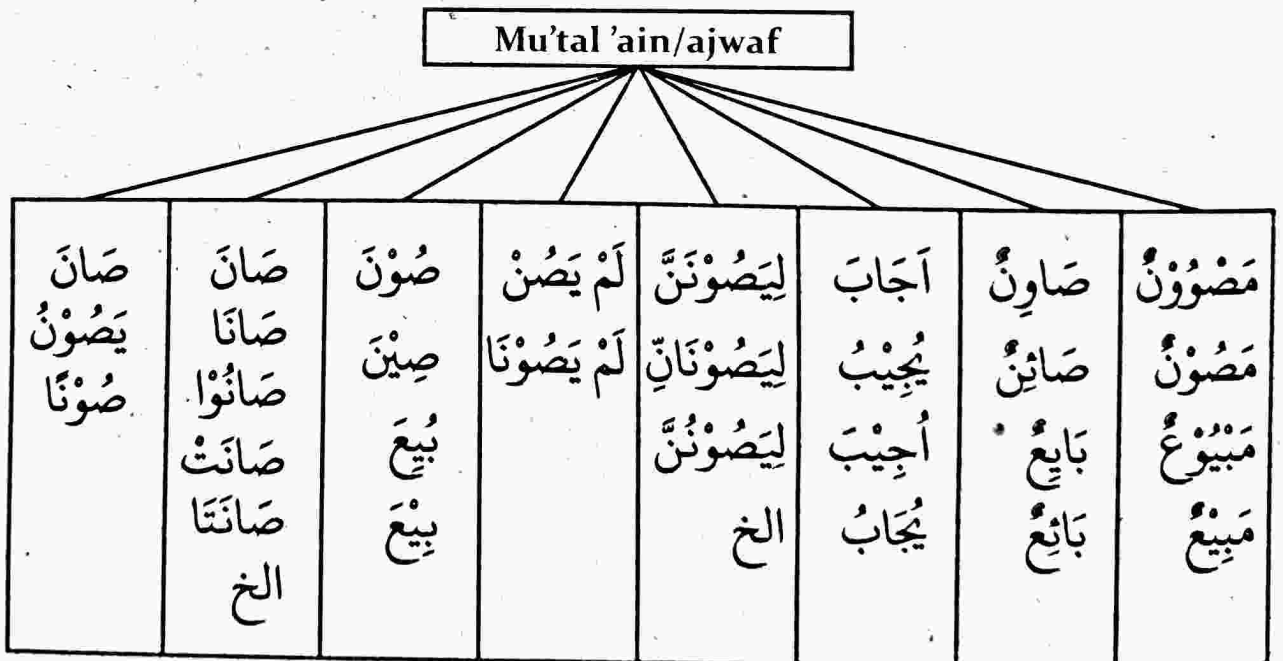 Mu'tal 'ain/ajwaf
صَانَ
يَصُوْنُ
صُوْنًا
صَانَ
صَانَا
صَانُوْا
صَانَتْ
صَانَتَا
الخ
صُوْنَ
صِيْنَ
بُيِعَ
بِيْعَ
لَمْ يَصُنْ
لَمْ يَصُوْنَا
لِيَصُوْنَنَّ
لِيَصُوْنَانِّ
لِيَصُوْنُنَّ
الخ
اَجَابَ
يُجِيْبُ
اُجِيْبَ
يُجَابُ
صَاوِنٌ
صَائِنٌ
بَايِعٌ
بَائِعٌ
مَصْوُوْنٌ
مَصُوْنٌ
مَبْيُوْعٌ
مَبِيْعٌ